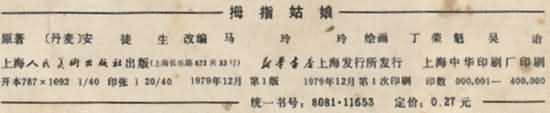 拇指姑娘
原著 (丹麦)安徒生 改编 马玲玲 绘画 丁荣魁 吴治
上海人民美术出版社出版(上海长乐路672弄33号) 新华书店上海发行所发行 上海中华印刷厂印刷
开本787×1092 1/40 印张 1 20/40 1979年12月第1版 1979年12月第1次印刷 印数 000,001—400,000
统一书号：8081·11653 定价：0.27元